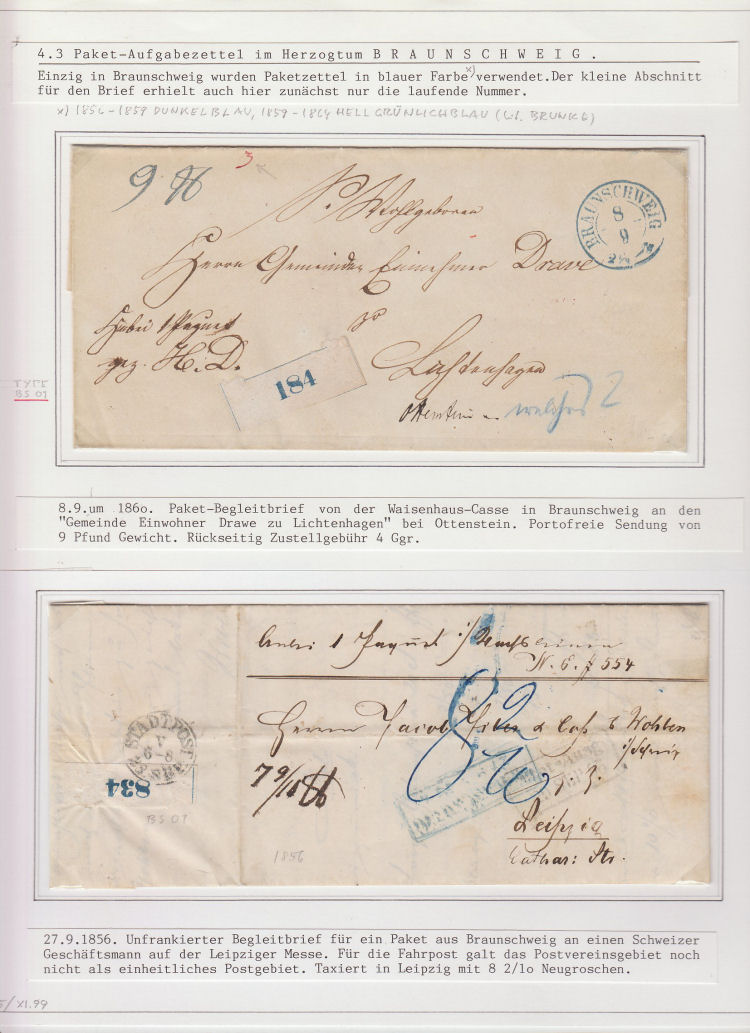 4.3 Paket-Aufgabezettel im Herzogtum B R A U N S C H W E I G .
Einzig in Braunschweig wurden Paketzettel in blauer Farbe x) verwendet.Der kleine Abschnitt
für den Brief erhielt auch hier zunächst nur die laufende Nummer.
x) 1856-1859 DUNKELBLAU, 1859-1864 HELLGRÜNLICHBLAU (lt. BRUNKE)
9 ℔
3
Wohlgeboren
BRAUNSCHWEIG
8
9
Herrn Gemeinde Einnehmer Drave
Hiebei 1 Paquet
zu
gez. H. D.
184
Lichtenhagen
Ottenstein
2
TYPE
BS 01
8.9.um 186o. Paket-Begleitbrief von der Waisenhaus-Casse in Braunschweig an den
"Gemeinde Einwohner Drawe zu Lichtenhagen" bei Ottenstein. Portofreie Sendung von
9 Pfund Gewicht. Rückseitig Zustellgebühr 4 Ggr.
1 Paquet
554
Herrn Jacob
STADTPOST
834
BS 01
7 9/10 ℔
Leipzig
Cathar: Str.
1856
27.9.1856. Unfrankierter Begleitbrief für ein Paket aus Braunschweig an einen Schweizer
Geschäftsmann auf der Leipziger Messe. Für die Fahrpost galt das Postvereinsgebiet noch
nicht als einheitliches Postgebiet. Taxiert in Leipzig mit 8 2/1o Neugroschen.
/XI.99